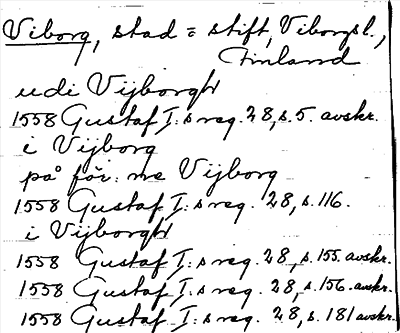 Viborg, stad = stift, Viborgsl.,
Finland
udi Vijborgh
1558 Gustaf I:s reg. 28, s. 5. avskr.
i Vijborg
på för: ne Vijborg
1558 Gustaf I:s reg. 28, s. 116.
i Vijborgh
1558 Gustaf I:s reg. 28, s. 155. avskr.
1558 Gustaf I:s reg. 28, s. 156. avskr.
1558 Gustaf I:s reg. 28, s. 181 avskr.